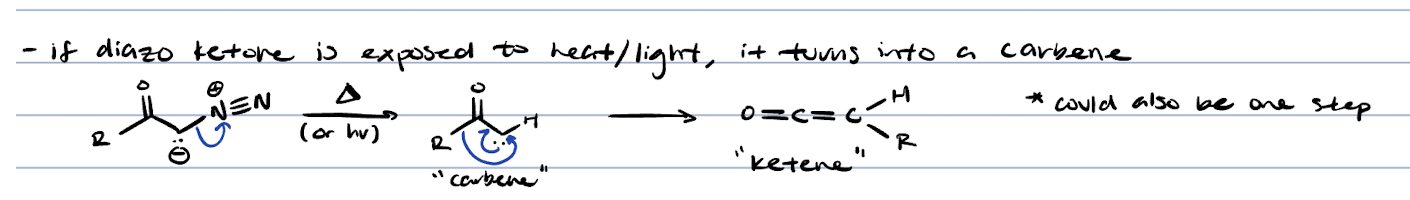 - if diazo ketone is exposed to heat/light, it turns into a carbene
O ⊕ N≡N R ⊖
Δ
(or hv)
O R H ..
"carbene"
O=C=C H R
"ketene"
* could also be one step